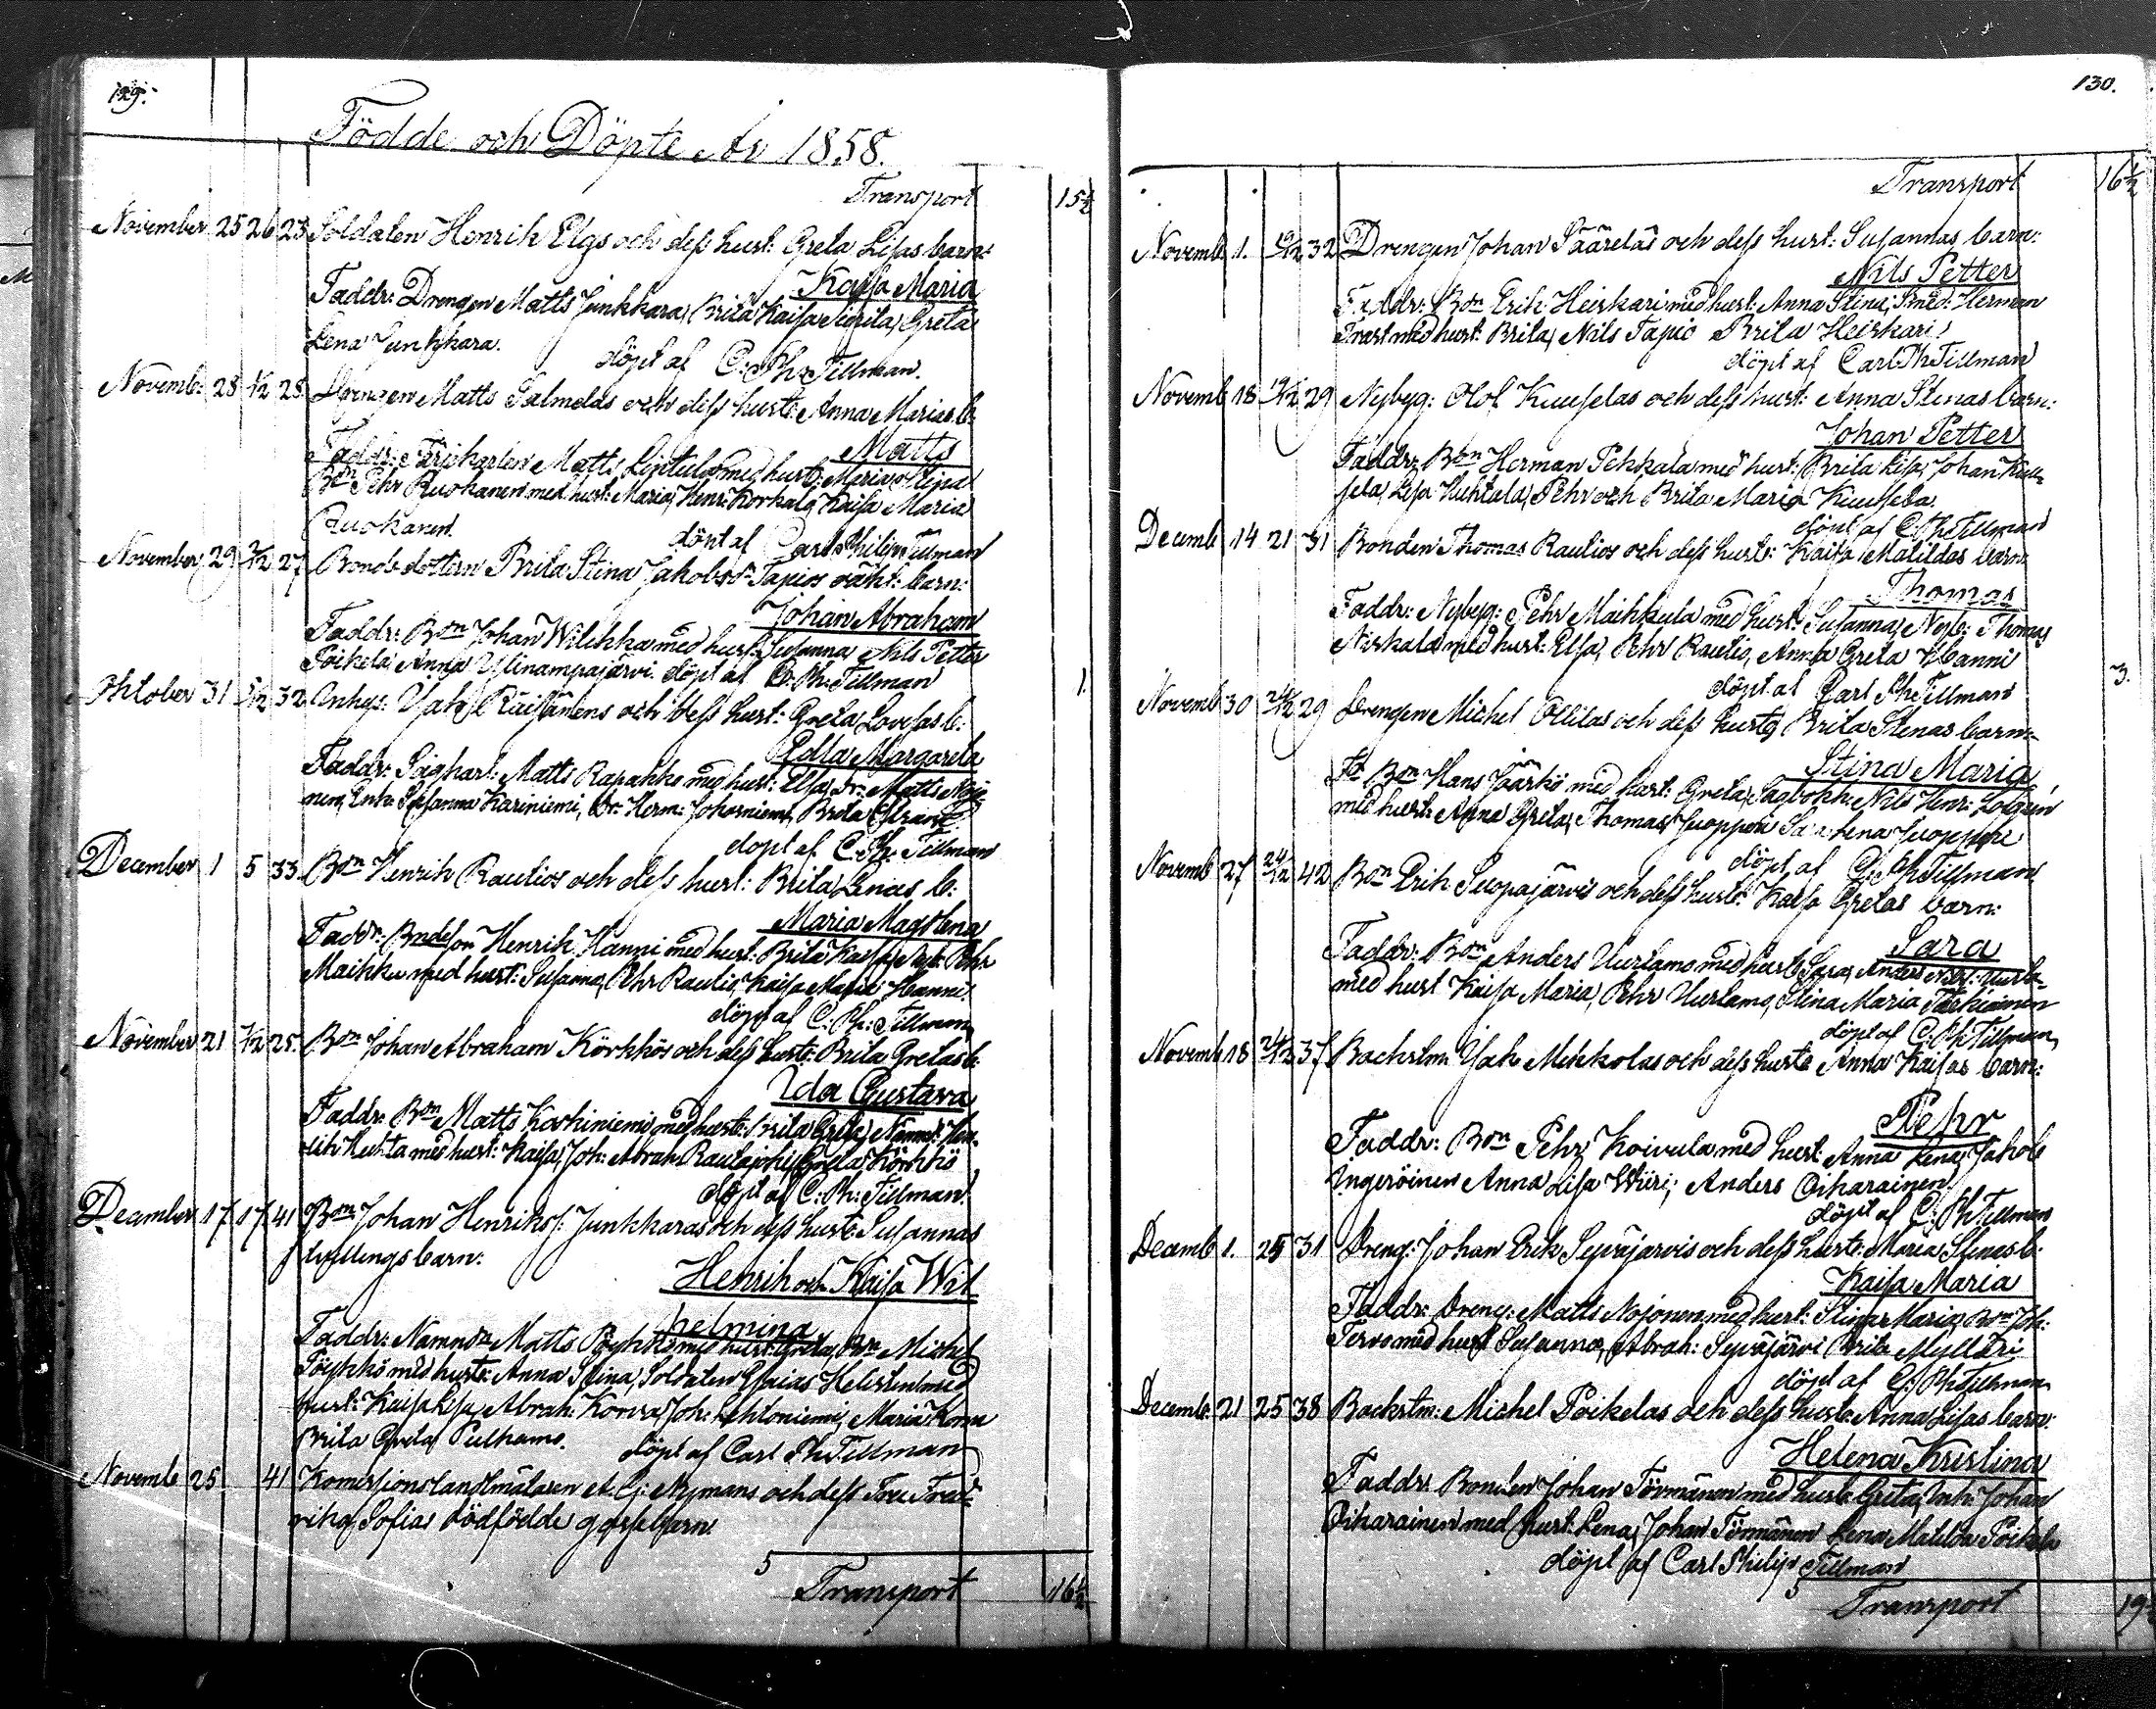 129.
Födde och Döpte År 1858.
Transport 15½
November 25 26 23 Soldaten Henrik Elgs och dess hust: Greta Lisas barn:
Kajsa Maria
Faddr: Drengen Matts Junkkara, Brita Kaisa Greta
Lena Junkkara.
döpt af C: Ph: Tillman.
Novemb: 28 1/12 28 Drengen Matts Salmelas och dess hustr: Anna Marias b:
Matts
Faddr: Matts Lintula med hust: Maria Stina
Bdn Pehr Ruokanen med hust: Maria, Henr: Korkala, Kaisa Maria
Ruokanen.
döpt af Carl Philip Tillman
November 29 2/12 27 Bonde dottern Brita Stina Jakobsdr Tapios oäkt: barn:
Johan Abraham
Faddr: Bdn Johan Wilikka med hust: Susanna Nils Petter
Poikela, Anna Ylinampajärvi. döpt af C: Ph: Tillman 1.
Oktober 31 5/12 32 Inhys: Jak: Räisänens och dess hust: Greta Lovisas b:
Edla Margareta
Faddr: Matts Rapakko med hust: Elsa, Dr: Matts Noj
nen, Enk: Susanna Kariniemi, Dr: Herm: Brita
döpt af C: Ph: Tillman
December 1 5 33 Bdn Henrik Rautios och dess hust: Brita Lenas b:
Maria Magdlena
Faddr: Bondeson Henrik Hanni med hust: Brita Kaisa, Pehr
Maikku med hust: Susanna, Pehr Rautio, Kaisa Maria Hanni
döpt af C: Ph: Tillman
November 21 7/12 25 Bdn Johan Abraham Körkkös och dess hustr: Brita Gretas b:
Ida Gustava
Faddr: Bdn Matts Koskiniemi med hustr: Brita Greta, Nämnd: Hen-
rik Huhta med hust: Kaisa, Joh: Abrah: Greta Körkkö
döpt af C: Ph: Tillman
December 17 17 41 Bdn Johan Henrikss: Junkkaras och dess hustr: Susannas
tvillingsbarn:
Henrik och Kaisa Wil-
helmina
Faddr: Nämndn Matts Pöykkö med hust: Greta, Bdn Michel
Pöykkö med hustr: Anna Stina, Soldaten Esaias Helisten med
hust: Kaisa Lisa, Abrah: Korva, Joh: Lehtoniemi, Maria Korva
Brita Greta Pulkamo. döpt af Carl Ph: Tillman
Novemb 25 41 Komissionslandtmätaren Nymans och dess Fru Fred-
rika Sofias dödfödde gossebarn.
5
Transport 16½
130.
Transport 16½
Novemb 1. 19/12 32 Drengen Johan Sääreläs och dess hust: Susannas barn:
Nils Petter
Faddr: Bdn Erik Heiskari med hust: Anna Stina, Smed: Herman
Trast med hust: Brita, Nils Tapio Brita Heiskari
döpt af Carl Ph: Tillman
Novemb 18 19/12 29 Nybyg: Olof Kuuselas och dess hust: Anna Stinas barn:
Johan Petter
Faddr: Bdn Herman Pekkala med hust: Brita Lisa, Johan Kuu-
sela, Lisa Huhtala, Pehr och Brita Maria Kuusela.
döpt af C: Ph: Tillman
Decemb 14 21 31 Bonden Thomas Rautios och dess hustr: Kaisa Matildas barn:
Thomas
Faddr: Nybyg: Pehr Maikkula med hust: Susanna, Nyb: Thomas
Niskala med hust: Elsa, Pehr Rautio, Anna Greta Hanni
döpt af Carl Ph: Tillman 3.
Novemb 30 24/12 29 Drengen Michel Ollilas och dess hustr: Brita Stinas barn:
Stina Maria
Fr: Bdn Hans Jaarkö med hust: Greta, Nils Henr: Lofgrén
med hust: Anna Greta, Thomas Juopperi Sara Lena Juopperi
döpt af C: Ph: Tillman
Novemb 27 24/12 42 Bdn Erik Suopajärvis och dess hustr: Kaisa Gretas barn:
Sara
Faddr: Bdn Anders Uurtamo med hust: Sara, Anders
med hust Kaisa Maria, Pehr Uurtamo, Stina Maria
döpt af C: Ph: Tillman
Novemb 18 24/12 37 Backstm: Jak: Mikkolas och dess hustr: Anna Kaisas barn:
Pehr
Faddr: Bdn Pehr Koivula med hust: Anna Lena, Jakob
Ingeröinen Anna Lisa Wiiri, Anders Oikarainen.
döpt af C: Ph: Tillman
Decemb 1. 25 31 Dreng: Johan Erik Syväjärvis och dess hustr: Maria Stinas b:
Kaisa Maria
Faddr: Dreng: Matts Nojonen med hust: Stina Maria, Bdn Joh:
Tervo med hust Susanna, Abrah: Syväjärvi Brita Mylläri
döpt af C: Ph: Tillman
Decemb: 21 25 38 Backstm: Michel Poikelas och dess hustr: Anna Lisas barn:
Helena Kristina
Faddr: Bonden Johan Törmänen med hustr: Greta, Inh: Johan
Oikarainen med hust: Lena, Johan Törmänen Lena Matilda Poikela
döpt af Carl Philip Tillman
5
Transport 19